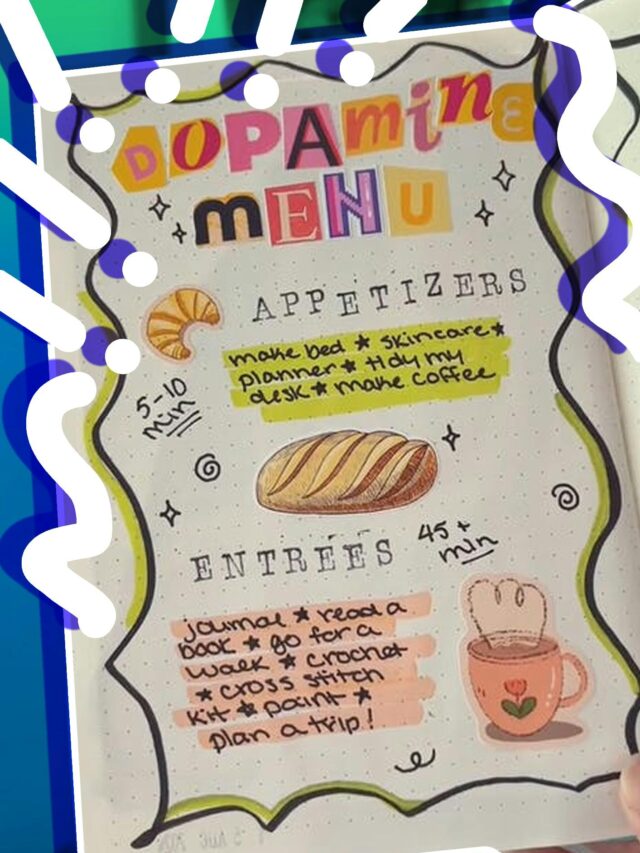 DOPAMINE
MENU
APPETIZERS
make bed ★ skincare ★
planner ★ tidy my
desk ★ make coffee
5-10
min
ENTREES
45+
min
journal ★ read a
book ★ go for a
walk ★ crochet
★ cross stitch
kit ★ paint ★
plan a trip!